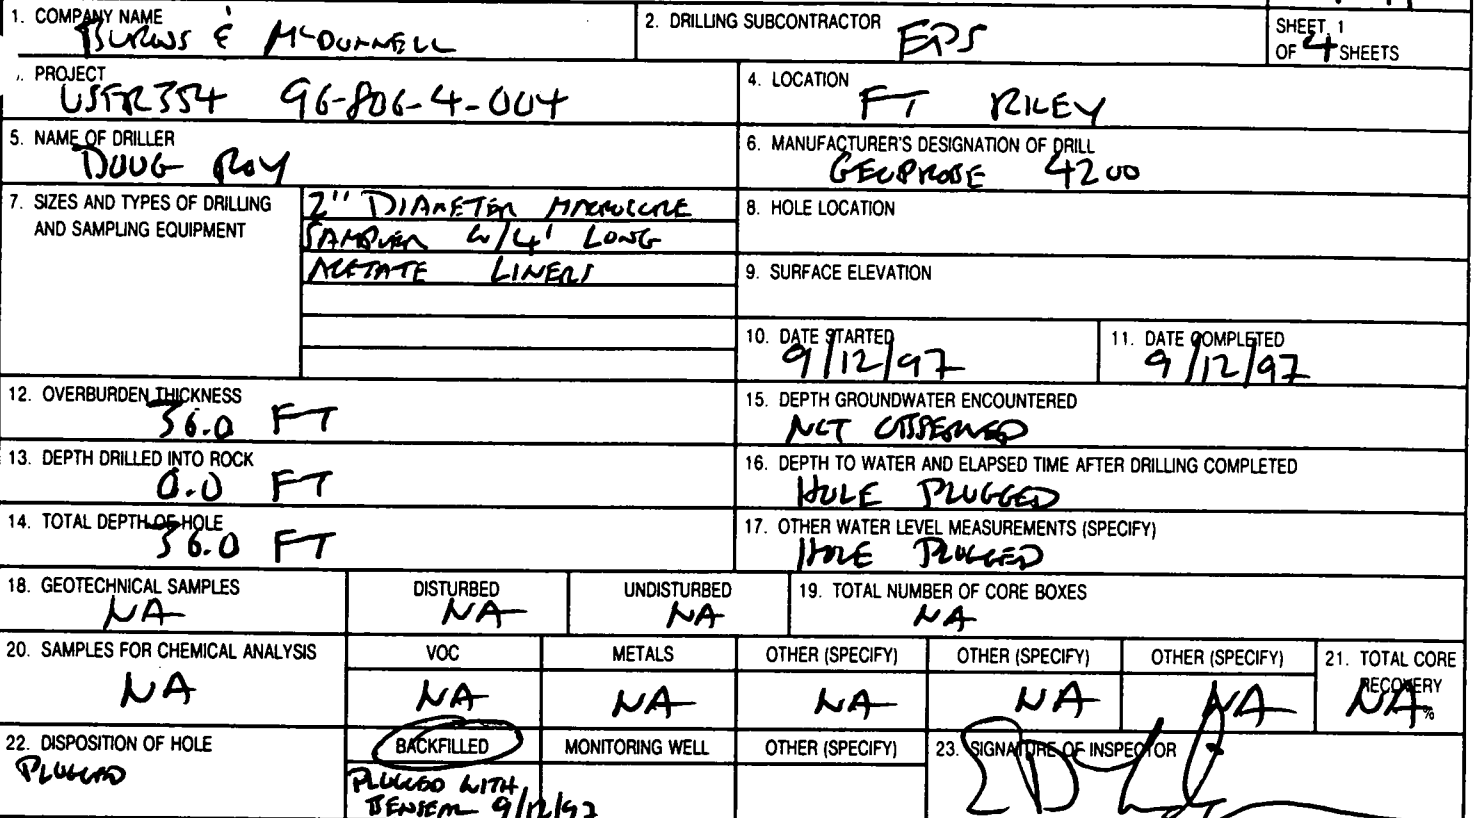 1. COMPANY NAME
BURNS & McDONNELL
2. DRILLING SUBCONTRACTOR
EPS
SHEET 1
OF 4 SHEETS
. PROJECT
USFR354 96-806-4-004
4. LOCATION
FT RILEY
5. NAME OF DRILLER
DOUG ROY
6. MANUFACTURER'S DESIGNATION OF DRILL
GEOPROBE 4200
7. SIZES AND TYPES OF DRILLING
AND SAMPLING EQUIPMENT
2" DIAMETER MACROCORE
SAMPLER W/4' LONG
ACETATE LINERS
8. HOLE LOCATION
9. SURFACE ELEVATION
10. DATE STARTED
9/12/97
11. DATE COMPLETED
9/12/97
12. OVERBURDEN THICKNESS
36.0 FT
15. DEPTH GROUNDWATER ENCOUNTERED
NOT OBSERVED
13. DEPTH DRILLED INTO ROCK
0.0 FT
16. DEPTH TO WATER AND ELAPSED TIME AFTER DRILLING COMPLETED
HOLE PLUGGED
14. TOTAL DEPTH OF HOLE
36.0 FT
17. OTHER WATER LEVEL MEASUREMENTS (SPECIFY)
HOLE PLUGGED
18. GEOTECHNICAL SAMPLES
NA
DISTURBED
NA
UNDISTURBED
NA
19. TOTAL NUMBER OF CORE BOXES
NA
20. SAMPLES FOR CHEMICAL ANALYSIS
NA
VOC
NA
METALS
NA
OTHER (SPECIFY)
NA
OTHER (SPECIFY)
NA
OTHER (SPECIFY)
NA
21. TOTAL CORE
RECOVERY
NA %
22. DISPOSITION OF HOLE
PLUGGED
BACKFILLED
PLUGGED WITH
BENSEAL 9/12/97
MONITORING WELL
OTHER (SPECIFY)
23. SIGNATURE OF INSPECTOR